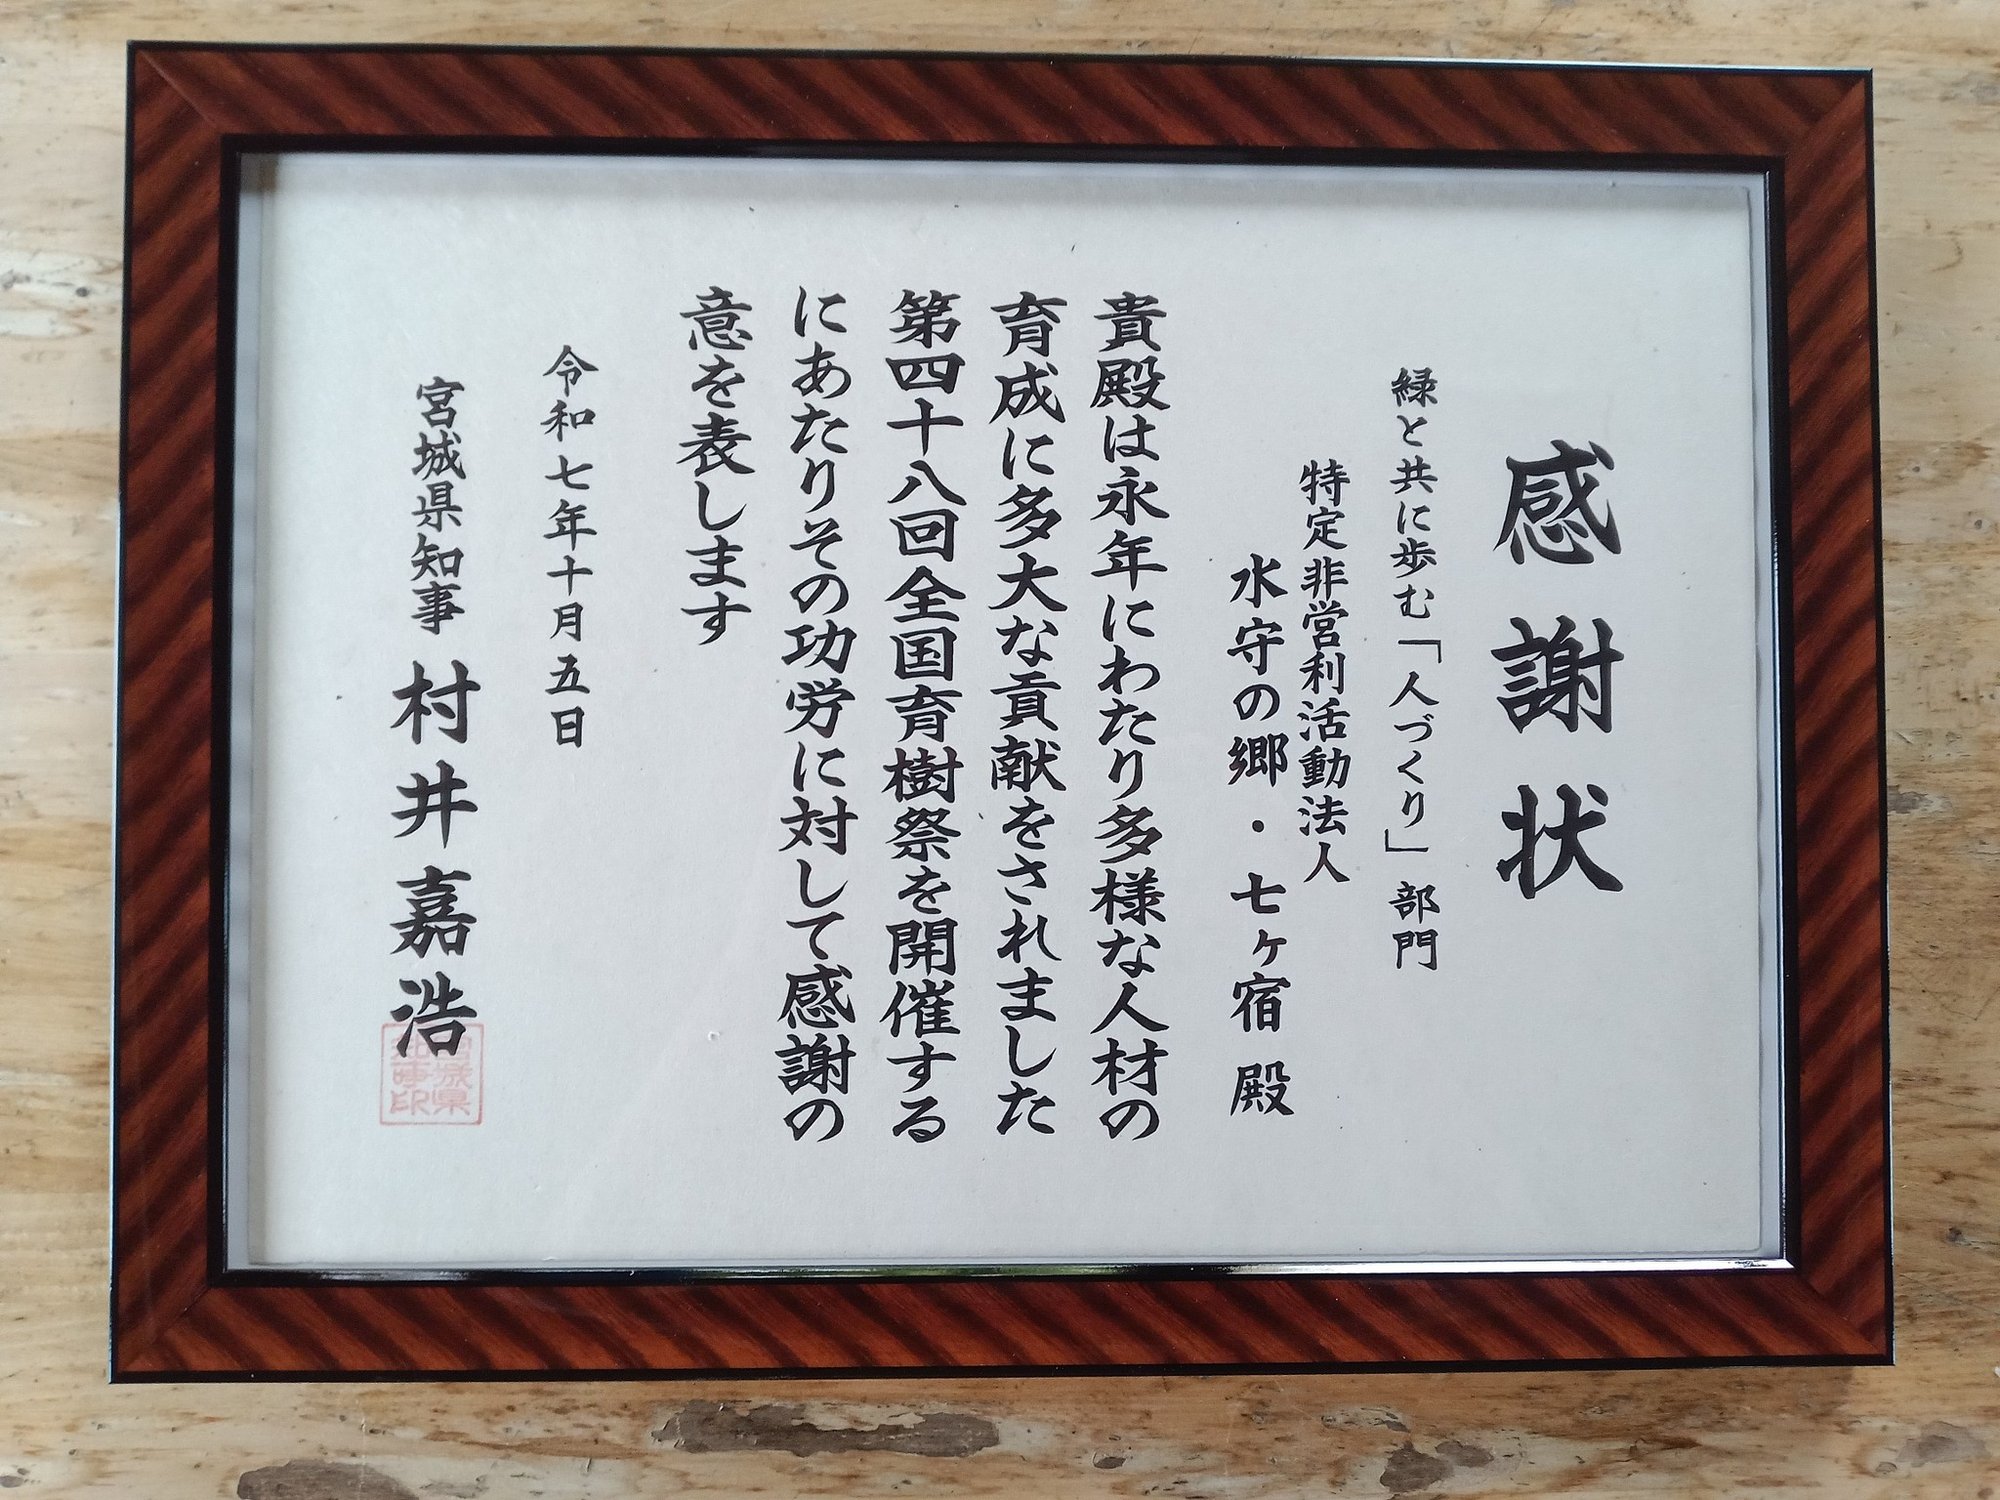 感謝状
緑と共に歩む「人づくり」部門
特定非営利活動法人
水守の郷・七ヶ宿 殿
貴殿は永年にわたり多様な人材の
育成に多大な貢献をされました
第四十八回全国育樹祭を開催する
にあたりその功労に対して感謝の
意を表します
令和七年十月五日
宮城県知事 村井嘉浩
宮城県知事印